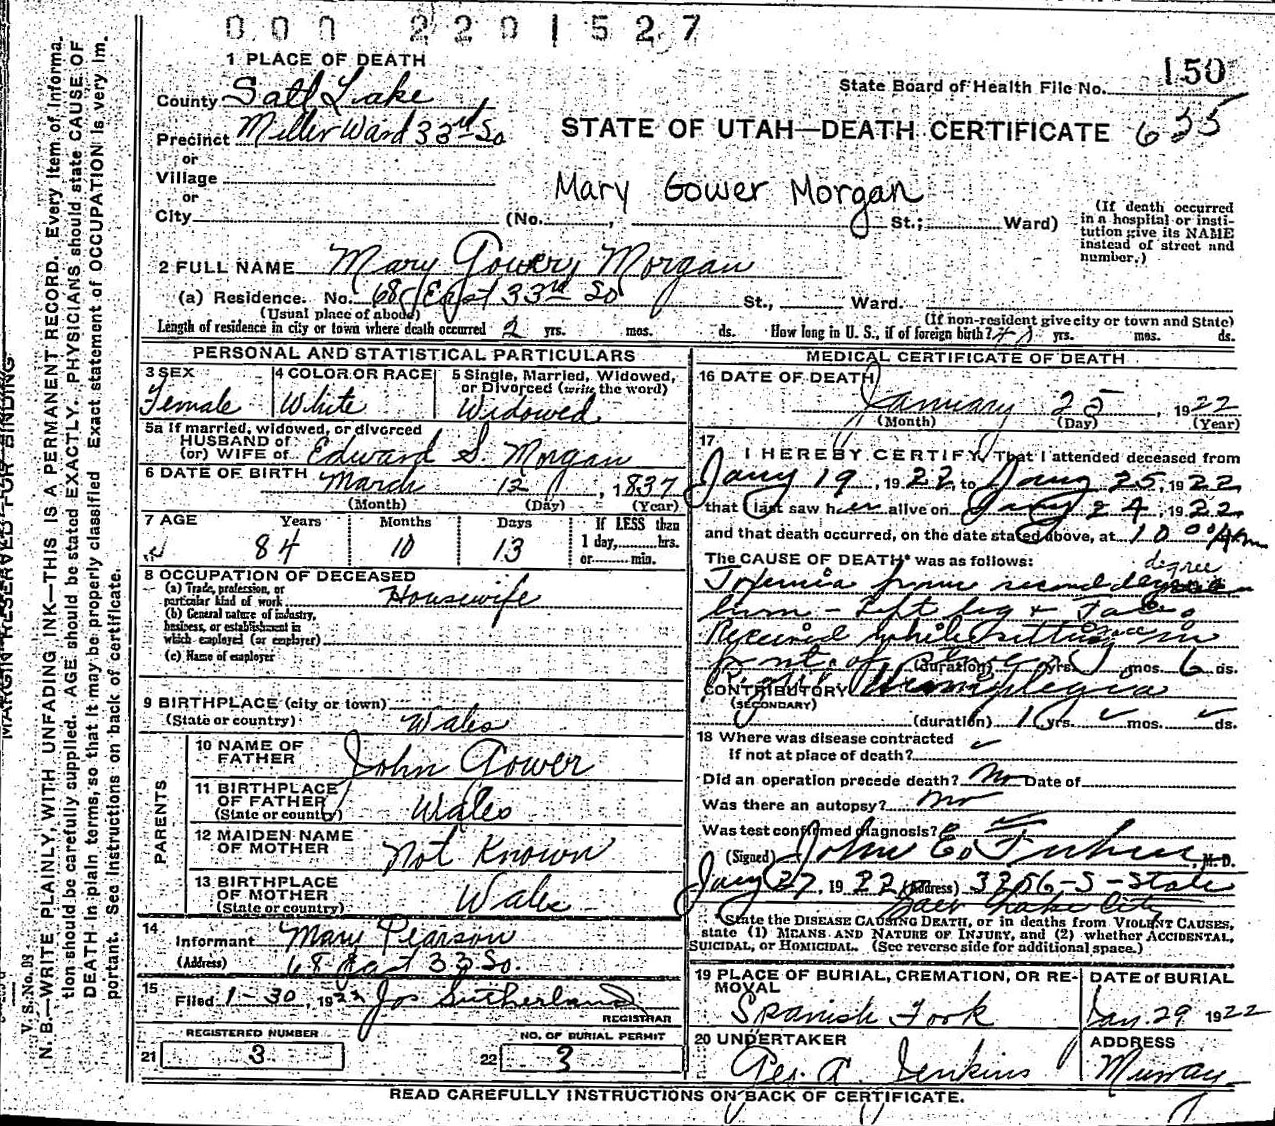 000 2201527
1 PLACE OF DEATH
State Board of Health File No. 150
County Salt Lake
Precinct Miller Ward 33rd So
STATE OF UTAH—DEATH CERTIFICATE 635
or
Village
or
Mary Gower Morgan
City (No. , St.; Ward)
(If death occurred
in a hospital or insti-
tution give its NAME
instead of street and
number.)
2 FULL NAME Mary Gowery Morgan
(a) Residence. No. 68 East 33rd So St., Ward.
(Usual place of abode)
(If non-resident give city or town and State)
Length of residence in city or town where death occurred 2 yrs. mos. ds. How long in U. S., if of foreign birth? yrs. mos. ds.
PERSONAL AND STATISTICAL PARTICULARS
3 SEX
Female
4 COLOR OR RACE
White
5 Single, Married, Widowed,
or Divorced (write the word)
Widowed
5a If married, widowed, or divorced
HUSBAND of
(or) WIFE of Edward S. Morgan
6 DATE OF BIRTH March 12, 1837
(Month) (Day) (Year)
7 AGE Years Months Days If LESS than
1 day, hrs.
84 10 13
or min.
8 OCCUPATION OF DECEASED
(a) Trade, profession, or
particular kind of work Housewife
(b) General nature of industry,
business, or establishment in
which employed (or employer)
(c) Name of employer
9 BIRTHPLACE (city or town)
(State or country) Wales
PARENTS
10 NAME OF
FATHER John Gower
11 BIRTHPLACE
OF FATHER
(State or country) Wales
12 MAIDEN NAME
OF MOTHER Not Known
13 BIRTHPLACE
OF MOTHER
(State or country) Wales
14
Informant Mary Pearson
(Address) 68 East 33 So.
15
Filed 1-30, 1922 Jos Sutherland
REGISTRAR
REGISTERED NUMBER
21 3
NO. OF BURIAL PERMIT
22 3
MEDICAL CERTIFICATE OF DEATH
16 DATE OF DEATH
January 25, 1922
(Month) (Day) (Year)
17
I HEREBY CERTIFY, That I attended deceased from
Jany 19, 1922, to Jany 25, 1922
that I last saw her alive on Jany 24, 1922
and that death occurred, on the date stated above, at 10 00 Am
The CAUSE OF DEATH* was as follows:
degree
Toxemia from second degree
burn - Left leg &
Received while sitting in
front of stove (duration) yrs. mos. 6 ds.
CONTRIBUTORY Right Hemiplegia
(SECONDARY)
(duration) 1 yrs. mos. ds.
18 Where was disease contracted
If not at place of death?
Did an operation precede death? No Date of
Was there an autopsy? No
Was test confirmed diagnosis?
(Signed) John E. , M.D.
Jany 27, 1922 (Address) 3256-S-State
Salt Lake City
*State the DISEASE CAUSING DEATH, or in deaths from VIOLENT CAUSES,
state (1) MEANS AND NATURE OF INJURY, and (2) whether ACCIDENTAL,
SUICIDAL, or HOMICIDAL. (See reverse side for additional space.)
19 PLACE OF BURIAL, CREMATION, OR RE-
MOVAL
Spanish Fork
DATE of BURIAL
Jan. 29 1922
20 UNDERTAKER
Geo. A. Jenkins
ADDRESS
Murray
READ CAREFULLY INSTRUCTIONS ON BACK OF CERTIFICATE.
MARGIN RESERVED FOR BINDING
V. S. No. D8
N. B.—WRITE PLAINLY, WITH UNFADING INK—THIS IS A PERMANENT RECORD. Every item of informa-
tion should be carefully supplied. AGE should be stated EXACTLY. PHYSICIANS should state CAUSE OF
DEATH in plain terms, so that it may be properly classified. Exact statement of OCCUPATION is very im-
portant. See instructions on back of certificate.